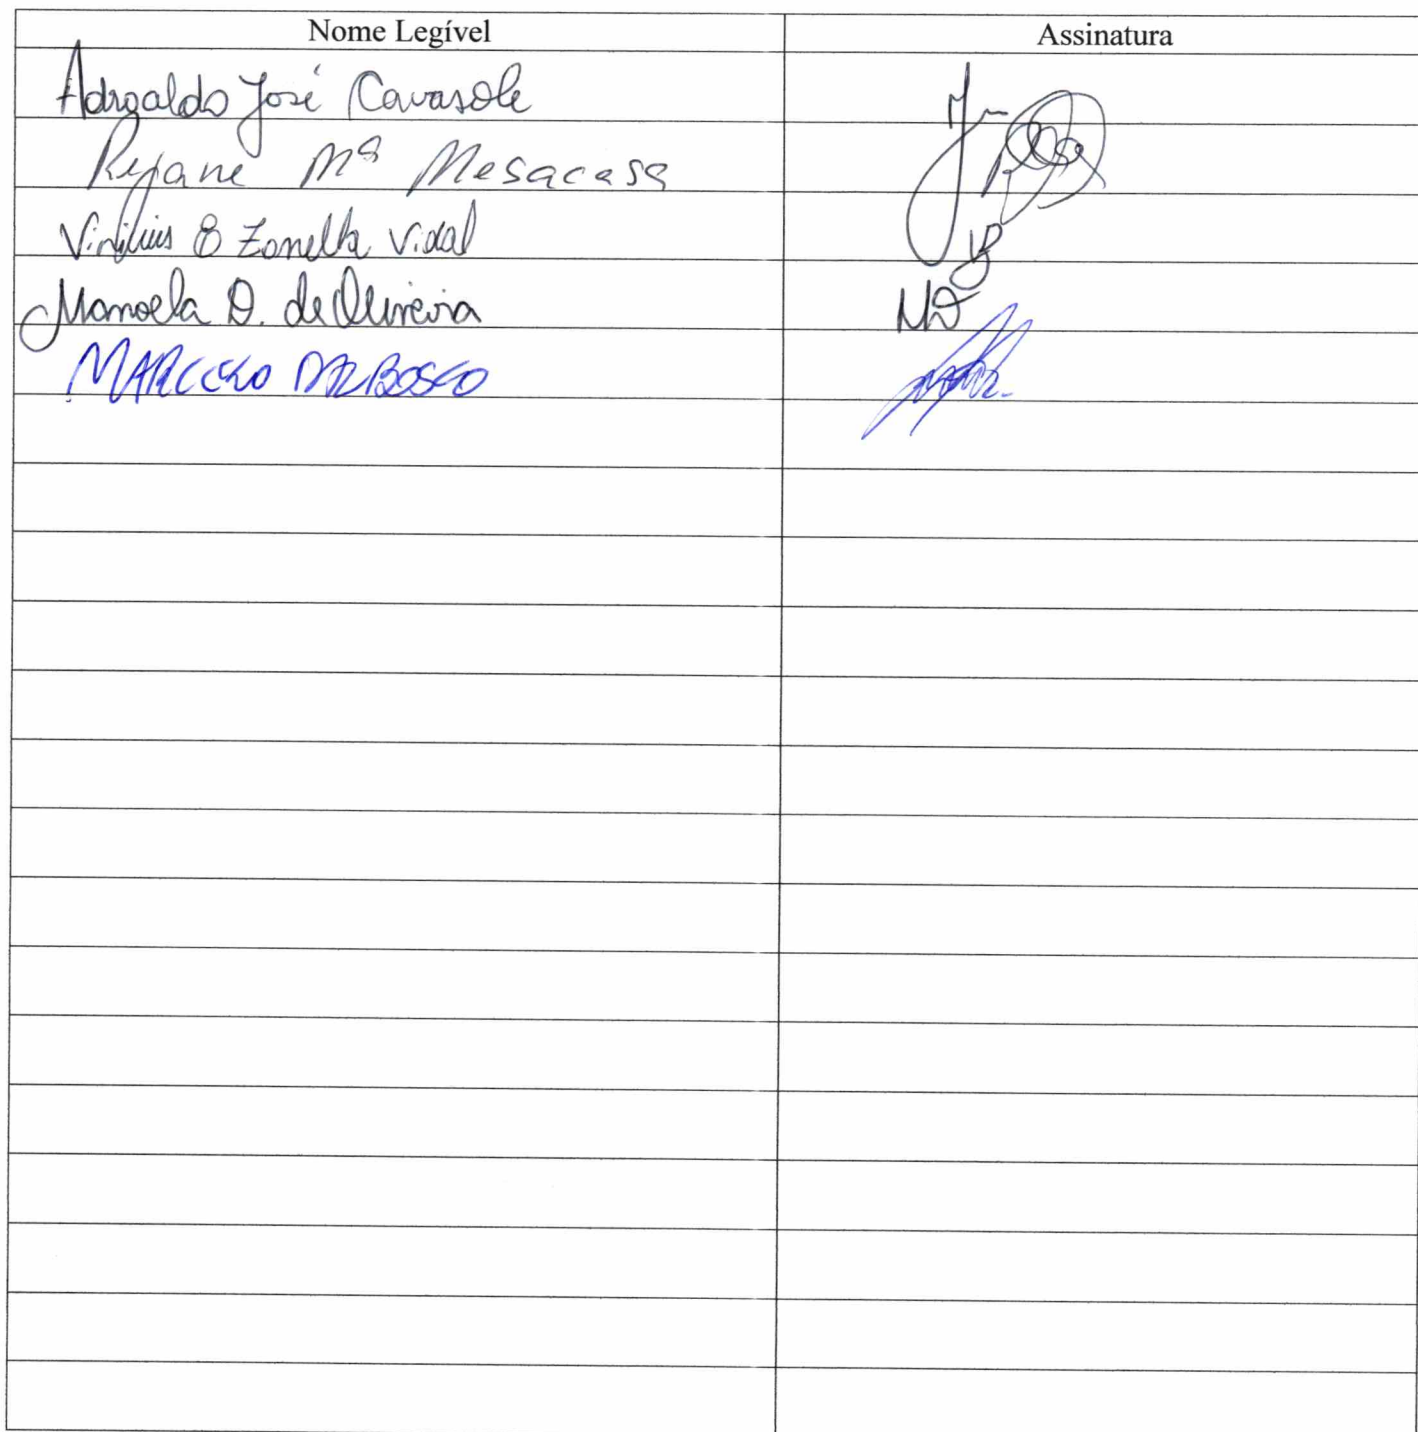 Nome Legível Assinatura
José Cavasole
Rejane Mª Mesacasa
Vinilius E Zanella Vidal
Manoela D. de Oliveira MD
MARCELO DALBOSCO